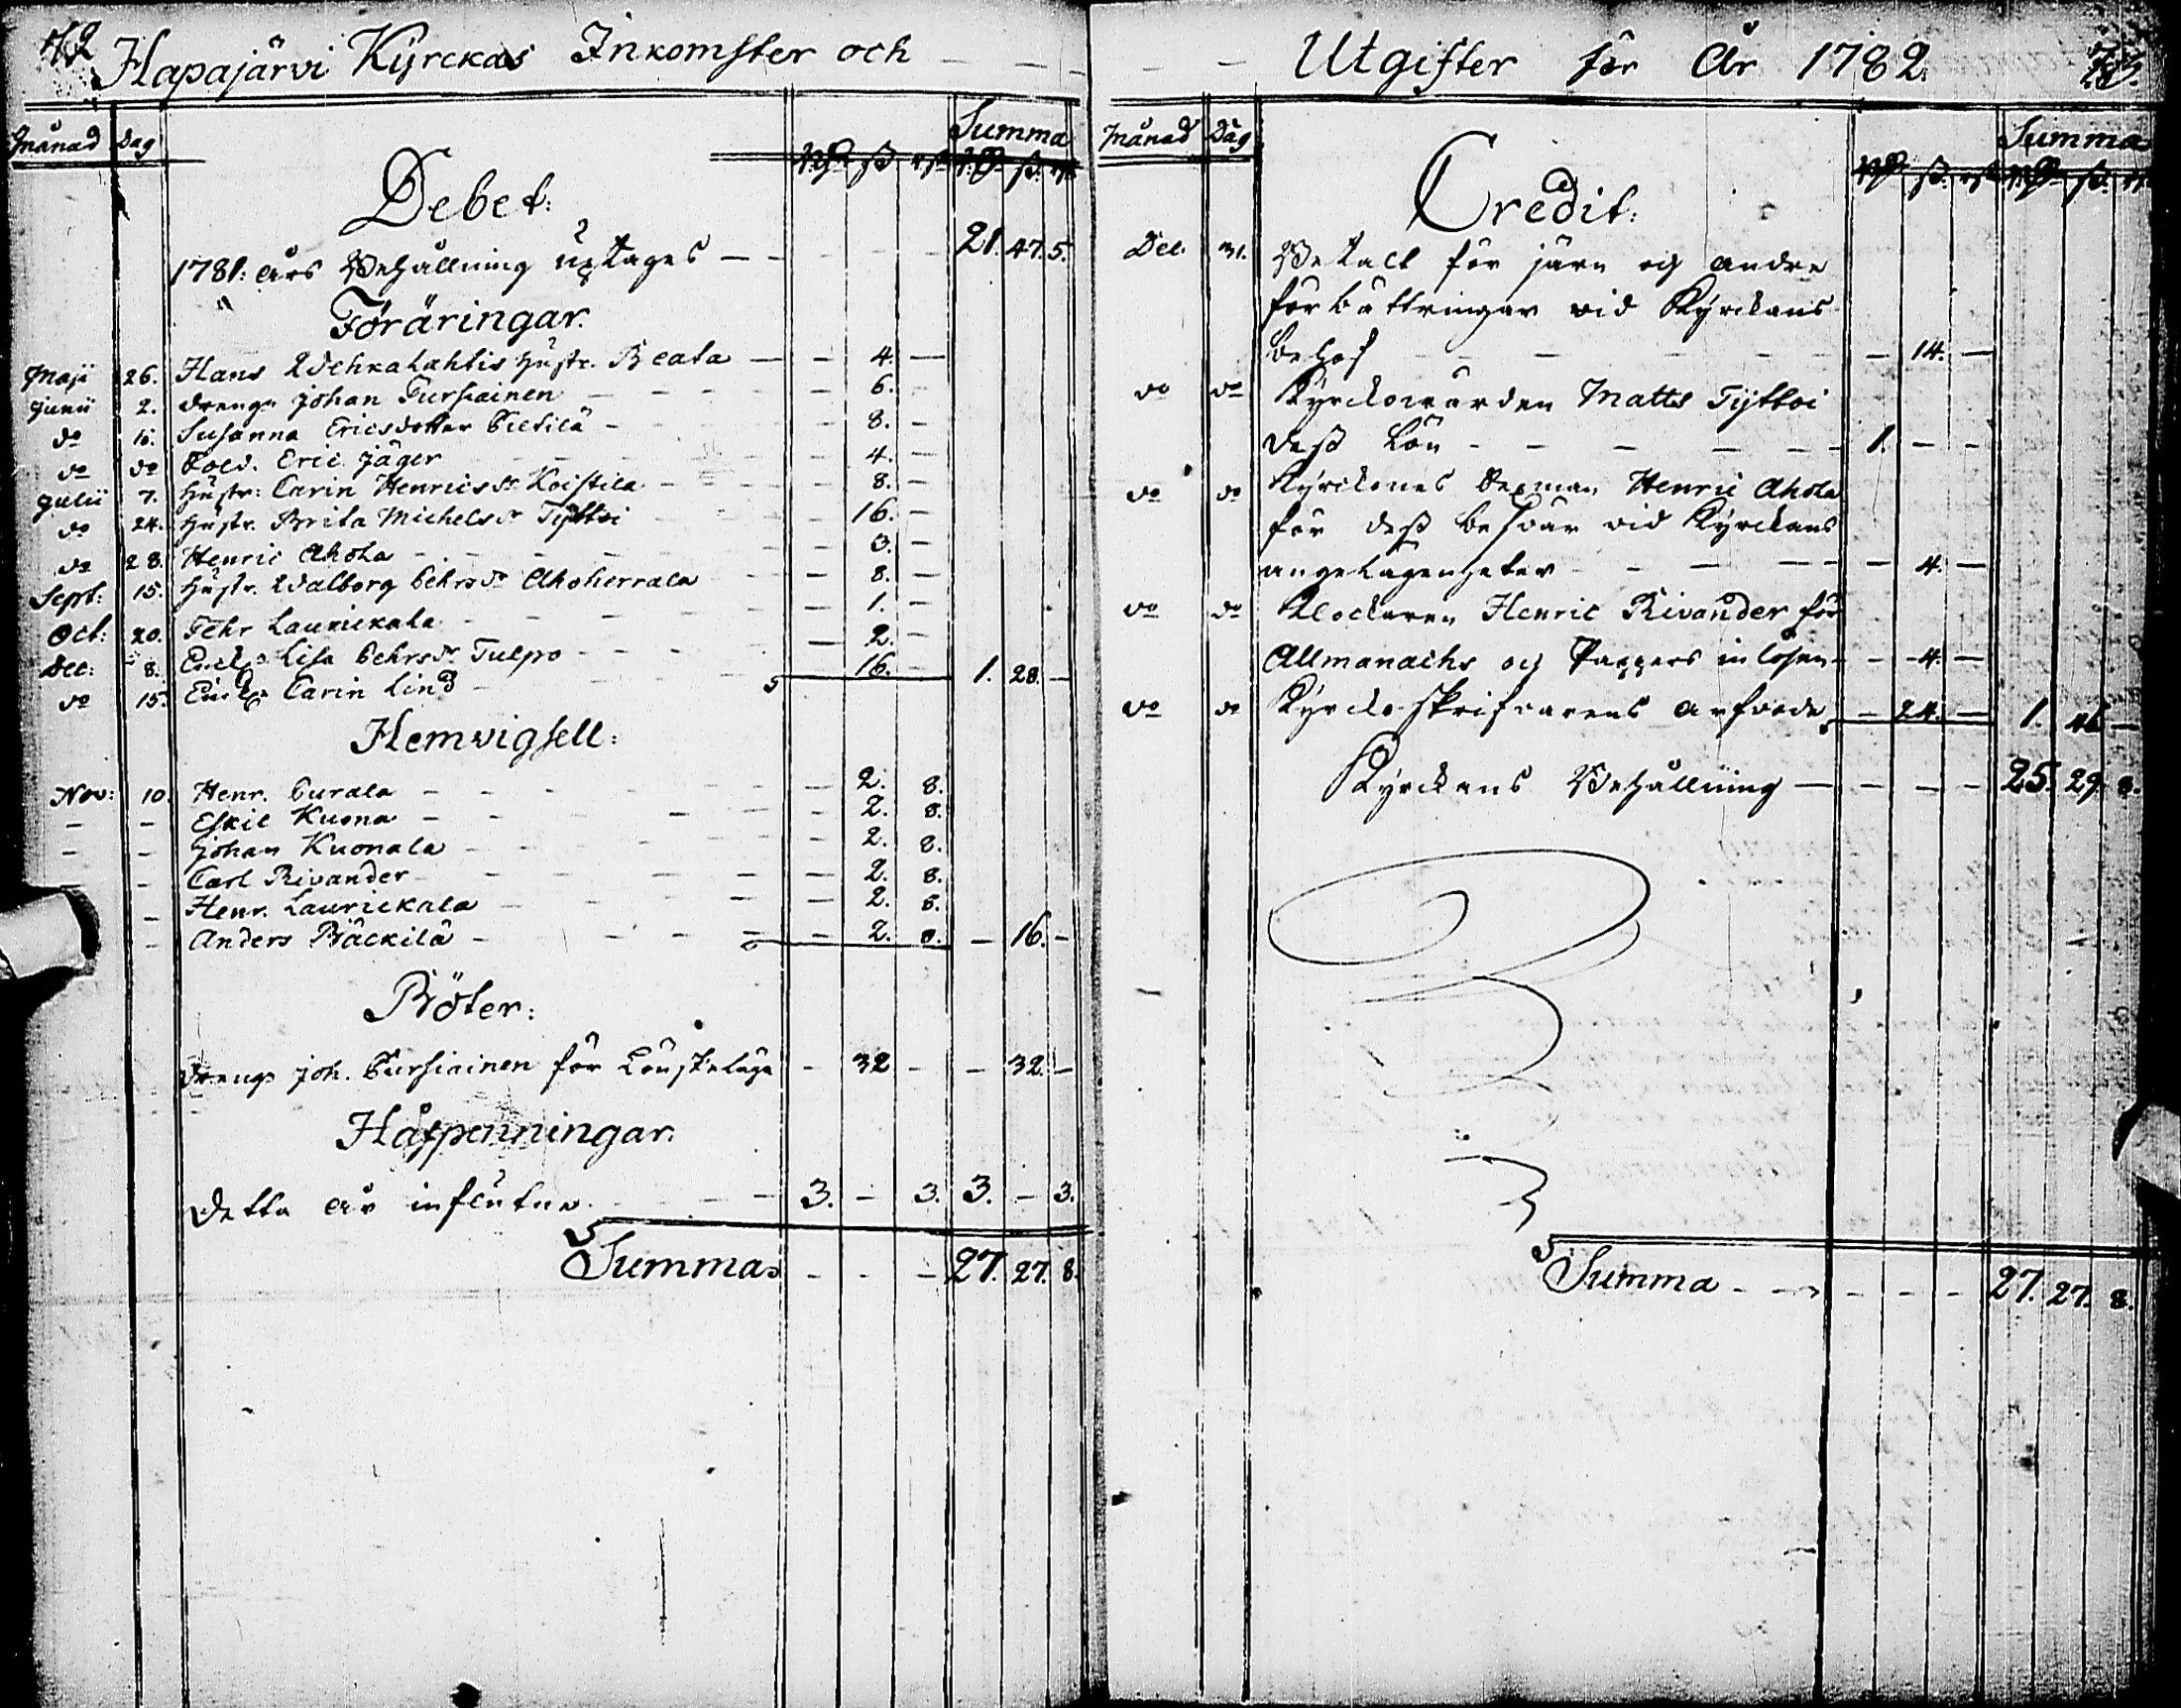 Hapajärvi Kyrckas Inkomster och
Månad Dag Summa
Debet:
1781: års Behållning uptages 21. 47. 5.
Föräringar.
Maji 26. Hans Wehkalahtis hustr. Beata 4.
Junii 2. drengn Johan Tursiainen 6.
do 16. Susanna Ericsdotter 8.
do do Sold. Eric Jäger 4.
Julii 7. Hustr: Carin Henricsdr Koistila 8.
do 24. Hustr. Brita Michelsdr Tyttöi 16.
do 28. Henric Ahola 3.
Sept: 15. Hustr. Walborg Pehrsdr Ahoherrala 8.
Oct: 20. Pehr Laurickala 1.
Dec: 8. Enck. Lisa Pehrsdr Tulpo 2.
do 15. Enck. Carin Lind 16. 1. 28.
Hemvigsell:
Nov: 10. Henr. Purala 2. 8.
Eskil Kuona 2. 8.
Johan Kuonala 2. 8.
Carl Rivander 2. 8.
Henr. Laurickala 2. 8.
Anders Bäckilä 2. 8. 16.
Böter:
drengn Joh. Tursiainen för Lönskeläge 32 32.
Håfpenningar.
Detta år influtne 3. 3. 3. 3.
Summa 27. 27. 8.
Utgifter för År 1782.
Månad Dag Summa
Credit:
Dec. 31. Betalt för järn och andre
förbättringar vid Kyrckans
behof 14.
do do Kyrckowärden Matts Tyttöi
dess Lön 1.
do do Kyrckones Henric Ahola
för dess besvär vid Kyrckans
angelägenheter 4.
do do Klockaren Henric Rivander för
Allmanachs och Pappers inlösen 4.
do do Kyrcko skrifvarens arfvode 24. 1. 46
Kyrckans Behållning 25. 29. 8.
Summa 27. 27. 8.